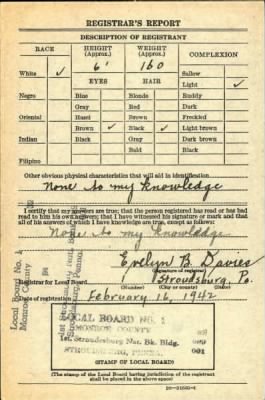 REGISTRAR'S REPORT
DESCRIPTION OF REGISTRANT
RACE HEIGHT (Approx.) WEIGHT (Approx.) COMPLEXION
6' 160 Sallow
White ✓ EYES HAIR Light ✓
Negro Blue Blonde Ruddy
Gray Red Dark
Oriental Hazel Brown Freckled
Brown ✓ Black ✓ Light brown
Indian Black Gray Dark brown
Bald Black
Filipino
Other obvious physical characteristics that will aid in identification
None to my knowledge
I certify that my answers are true; that the person registered has read or has had
read to him his own answers; that I have witnessed his signature or mark and that
all of his answers of which I have knowledge are true, except as follows:
None to my knowledge
Evelyn B. Davies
(Signature of registrar)
Registrar for Local Board Stroudsburg, Pa.
(Number) (City or county) (State)
Date of registration February 16, 1942
Local Board No. 1
Monroe County
LOCAL BOARD NO. 1
MONROE COUNTY
1st. Stroudsburg Nat. Bk. Bldg.
STROUDSBURG, PENNA.
089
001
(STAMP OF LOCAL BOARD)
(The stamp of the Local Board having jurisdiction of the registrant
shall be placed in the above space)